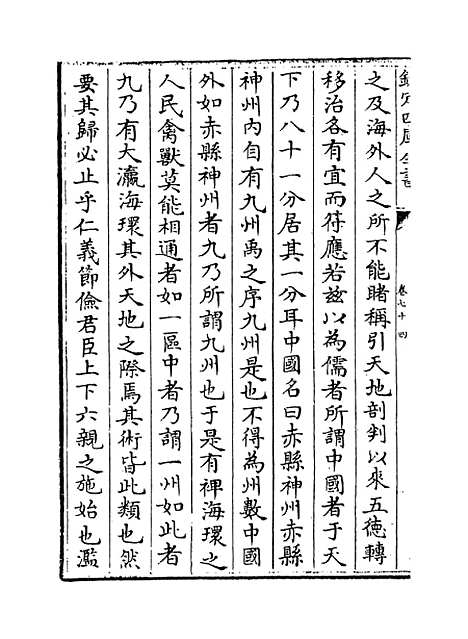 欽定四庫全書
卷七十四
之及海外人之所不能睹稱引天地剖判以來五德轉
移治各有宜而符應若茲以為儒者所謂中國者于天
下乃八十一分居其一分耳中國名曰赤縣神州赤縣
神州內自有九州禹之序九州是也不得為州數中國
外如赤縣神州者九乃所謂九州也于是有裨海環之
人民禽獸莫能相通者如一區中者乃謂一州如此者
九乃有大瀛海環其外天地之際焉其術皆此類也然
要其歸必止乎仁義節儉君臣上下六親之施始也濫